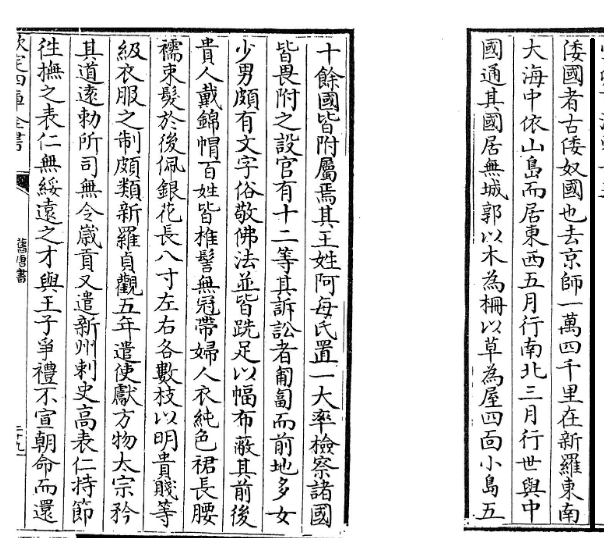 倭國者古倭奴國也去京師一萬四千里在新羅東南
大海中依山島而居東西五月行南北三月行世與中
國通其國居無城郭以木為柵以草為屋四面小島五
十餘國皆附屬焉其王姓阿每氏置一大率檢察諸國
皆畏附之設官有十二等其訴訟者匍匐而前地多女
少男頗有文字俗敬佛法並皆跣足以幅布蔽其前後
貴人戴錦帽百姓皆椎髻無冠帶婦人衣純色裙長腰
襦束髮於後佩銀花長八寸左右各數枝以明貴賤等
級衣服之制頗類新羅貞觀五年遣使獻方物太宗矜
其道遠勅所司無令歲貢又遣新州刺史高表仁持節
往撫之表仁無綏遠之才與王子爭禮不宣朝命而還
欽定四庫全書
舊唐書